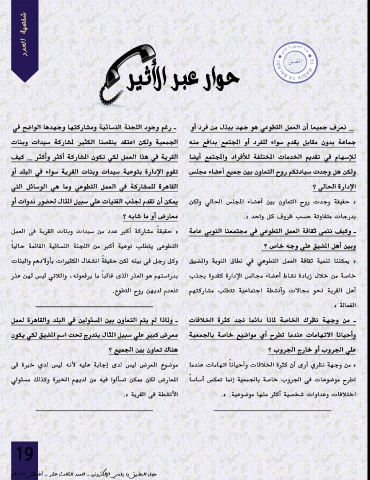 شخصية العدد
حوار عبر الأثير
ــ نعرف جميعا أن العمل التطوعي هو جهد يبذل من فرد أو
جماعة بدون مقابل يقدم سواء للفرد أو المجتمع بدافع منه
للإسهام في تقديم الخدمات المختلفة للأفراد والمجتمع أيضا
ولكن هل وجدت سيادتكم روح التعاون بين جميع أعضاء مجلس
الإدارة الحالي ؟
× حقيقة وجدت روح التعاون بين أعضاء المجلس الحالي ولكن
بدرجات متفاوتة حسب ظروف كل واحد ×.
ـ وكيف ننمي ثقافة العمل التطوعي في مجتمعنا النوبي عامة
وبين أهل المضيق علي وجه خاص ؟
× يمكننا تنمية ثقافة العمل التطوعي في نطاق النوبة والمضيق
خاصة من خلال زيادة نشاط أعضاء مجالس الإدارة كقدوة بجذب
أهل القرية نحو مجالات وأنشطة اجتماعية تتطلب مشاركتهم
الفعالة ×.
ـ من وجهة نظرك الخاصة لماذا دائما نجد كثرة الخلافات
وأحيانا الاتهامات عندما تطرح أي مواضيع خاصة بالجمعية
علي الجروب أو خارج الجروب ؟
× من وجهة نظري أرى أن كثرة الخلافات وأحياناً اتهامات عندما
تطرح موضوعات في الجروب خاصة بالجمعية إنما تعكس أساساً
اختلافات وعداوات شخصية أكثر منها موضوعية ×.
ـ رغم وجود اللجنة النسائية ومشاركتها وجهدها الواضح في
الجمعية ولكن اعتقد ينقصنا الكثير لمشاركة سيدات وبنات
القرية في هذا العمل لكي تكون المشاركة أكثر وأكثر ــ كيف
تقوم الإدارة بتوعية سيدات وبنات القرية سواء في البلد أو
القاهرة للمشاركة في العمل التطوعي وما هي الوسائل التي
يمكن أن تقدم لجذب الفتيات علي سبيل المثال لحضور ندوات أو
معارض أو ما شابه ؟
× حقيقة مشاركة أكبر عدد من سيدات وبنات القرية في العمل
التطوعي يتطلب توعية أكبر من اللجنة النسائية القائمة حالياً
وكل رجل في بيته لكن حقيقة انشغال الكثيرات بأولادهم والبنات
بدراستهم هو العذر الذى غالباً ما يرفعونه ، واللاتي ليس لهن عذر
تنعدم لديهن روح التطوع.
ـ ولماذا لم يتم التعاون بين المسئولين في البلد والقاهرة لعمل
معرض كبير علي سبيل المثال يندرج تحت اسم المضيق لكي يكون
هناك تعاون بين الجميع ؟
موضوع المعرض ليس لدى إجابة عليه لأنه ليس لدي خبرة فى
المعارض لكن ممكن تسألوا فيه من لديهم الخبرة وكذلك مسئولي
الأنشطة فى القرية ×.
19